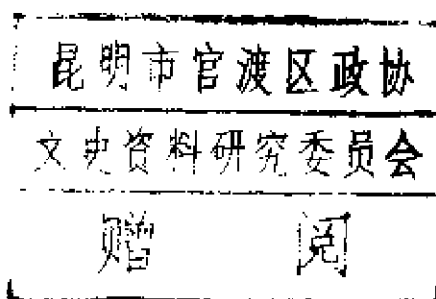 昆明市官渡区政协
文史资料研究委员会
赠 阅